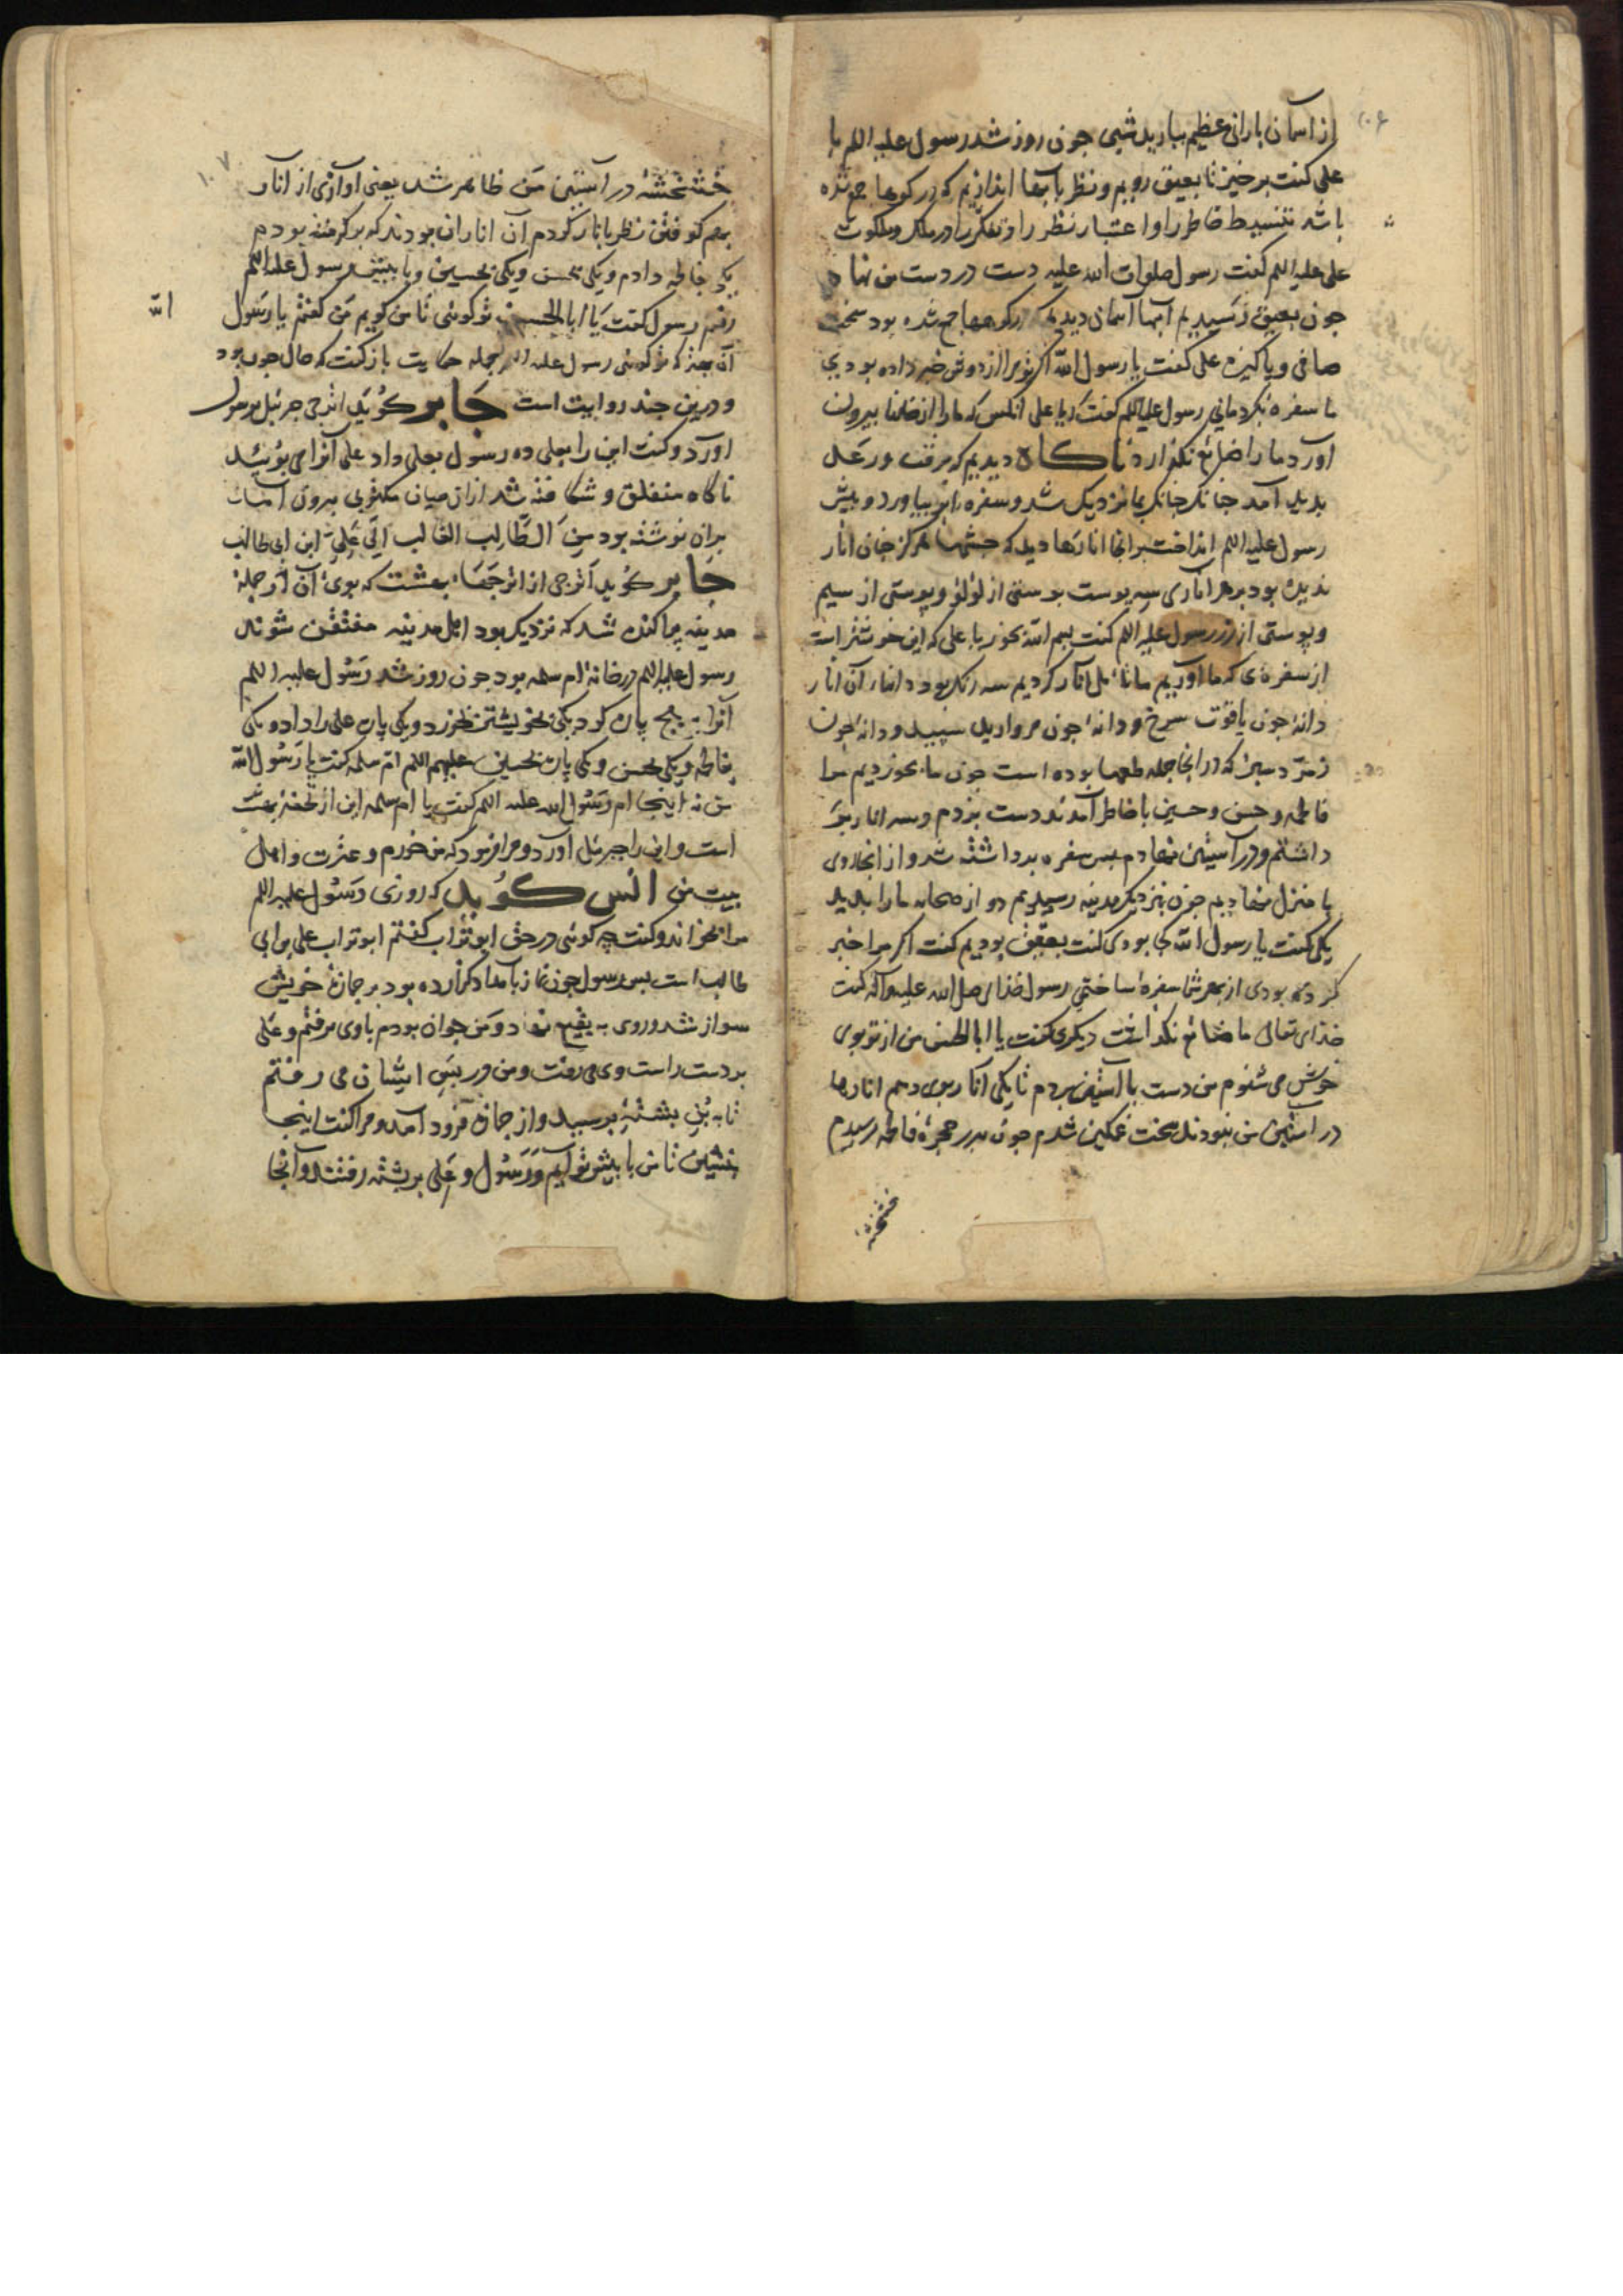 ۱۰۶
از آسمان بارانی عظیم ببارید شبی جون روز شد رسول علیه السلم با
علی کفت برخیز تا بعیق رویم و نظر بآبها اندازیم که در کوها جمع شده
باشد تنسیط خاطر را و اعتبار نظر را و تفکر را در ملک و ملکوت
علی علیه السلم کفت رسول صلوات الله علیه دست در دست من نهاد
جون بعیق رسیدیم آبهاء آسمان دیدیم در کوهها جمع شده بود سخت
صافی و پاکیزه علی کفت یا رسول الله اکر تو مرا از دوش خبر داده بودی
ما سفره بکردمانی رسول علیه السلم کفت یا علی آنکس که ما را از ظلمتها بیرون
آورد ما را ضایع نکذارد ناکاه دیدیم که برقت و رعد
بدید آمد جنانکه بما نزدیک شد و سفره بیاورد و پیش
رسول علیه السلم انداخت برانجا انارها دید که جشمها هرکز جنان انار
ندیده بود بر هر اناری سه پوست پوستی از لؤلؤ و پوستی از سیم
و پوستی از زر رسول علیه السلم کفت بسم الله بخور یا علی که این خوشتر است
از سفره‌ی که ما آوریم ما تأمل انار کردیم سه رنک بود دانهاء آن انار
دانه جون یاقوت سرخ و دانه جون مروارید سپید و دانه جون
زمرّد سبز که در انجا جمله طعمها بوده است جون ما بخوردیم مرا
فاطمه و حسن و حسین با خاطر آمدند دست بزدم و سه انار بر
داشتم و در آستین نهادم پس سفره برداشته شد و از انجا روی
با منزل نهادیم جون بنزدیک مدینه رسیدیم دو از صحابه ما را بدید
یکی کفت یا رسول الله کی بودی کفت بعقیق بودیم کفت اکر مرا خبر
کرده بودی از بهر شما سفره ساختمی رسول خذای صلی الله علیه و آله کفت
خذای تعالی ما ضایع نکذاشت دیکری کفت یا ابا الحسن من از تو بوی
خوش می شنوم من دست با آستین بردم تا یکی انار بوی دهم انارها
در آستین من نبودند سخت غمکین شدم جون بدر حجره فاطمه رسیدم
خشخشه
۱۰۷
خشخشه در آستین من ظاهر شد یعنی آوازی از انار
بهم کوفتن نظر بانار کردم آن اناران بودند که برکرفته بودم
یکی بفاطمه دادم و یکی بحسن و یکی بحسین و با پیش رسول علیه السلم
رفتم رسول کفت یا ابا الحسن تو کوئی تا من کویم من کفتم یا رسول
الله
آن بهتر که تو کوئی رسول علیه السلم جمله حکایت باز کفت که حال جون بود
و درین جند روایت است جابر کوید اترجی جبرئیل برسول
آورد و کفت این را بعلی ده رسول بعلی داد علی آنرا می بوئید
ناکاه منفلق و شکافته شد از ان میان مکتوبی بیرون آمد
بران نوشته بود من الطالب الغالب الی علی ابن ابی طالب
جابر کوید اترجی از اترجهاء بهشت که بوی آن از جمله
مدینه پراکنده شد که نزدیک بود اهل مدینه مفتتن شوند
رسول علیه السلم در خانه ام سلمه بود جون روز شد رسول علیه السلم
آنرا بپنج پاره کرد یکی بخویشتن بخورد و یکی پاره علی را داد و یکی
بفاطمه و یکی بحسن و یکی پاره بحسین علیهم السلم ام سلمه کفت یا رسول الله
من نه اینجاام رسول الله علیه السلم کفت یا ام سلمه این از تحفهٔ بهشت
است و این را جبرئیل آورد و مرا فرمود که من خورم و عترت و اهل
بیت من انس کوید که روزی رسول علیه السلم
مرا بخواند و کفت چه کوئی در حق ابو تراب کفتم ابو تراب علی بن ابی
طالب است پس رسول جون نماز بامداد کزارده بود بر جمازهٔ خویش
سوار شد و روی به بقیع نهاد و من جوان بودم با وی برفتم و علی
بر دست راست وی می رفت و من در پس ایشان می رفتم
تا به بُن پشتهٔ برسید و از جمازه فرود آمد و مرا کفت اینجا
بنشین تا من با پیش تو آیم و رسول و علی بر پشته رفتند و آنجا